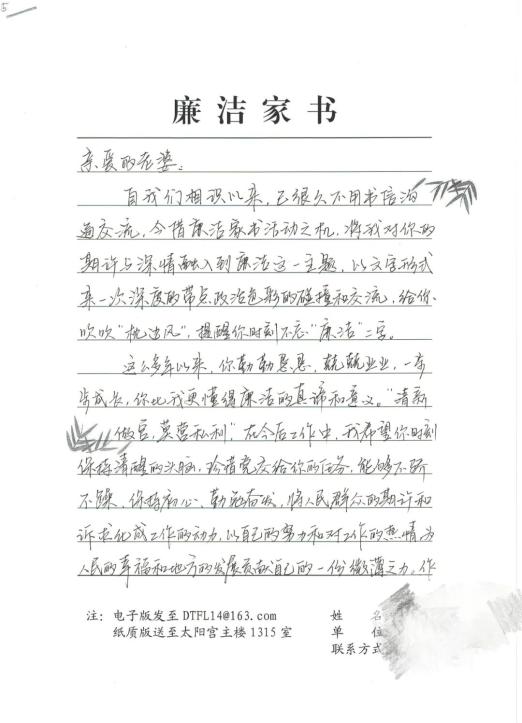 5
廉洁家书
亲爱的老婆：
自我们相识以来，已很久不用书信沟
通交流，今借廉洁家书活动之机，将我对你的
期许与深情融入到廉洁这一主题，以文字形式
来一次深度的带点政治色彩的碰撞和交流，给你
吹吹“枕边风”，提醒你时刻不忘“廉洁”二字。
这么多年以来，你勤勤恳恳，兢兢业业，一步
步成长，你比我更懂得廉洁的真谛和意义。“清新
做官，莫营私利”，在今后工作中，我希望你时刻
保持清醒的头脑，珍惜党交给你的任务，能够不骄
不躁，保持初心，勤勉奋发，将人民群众的期许和
诉求化成工作的动力，以自己的努力和对工作的热情为
人民的幸福和地方的发展贡献自己的一份微薄之力。作
注：电子版发至 DTFL14@163.com
纸质版送至太阳宫主楼 1315 室
姓 名
单 位
联系方式